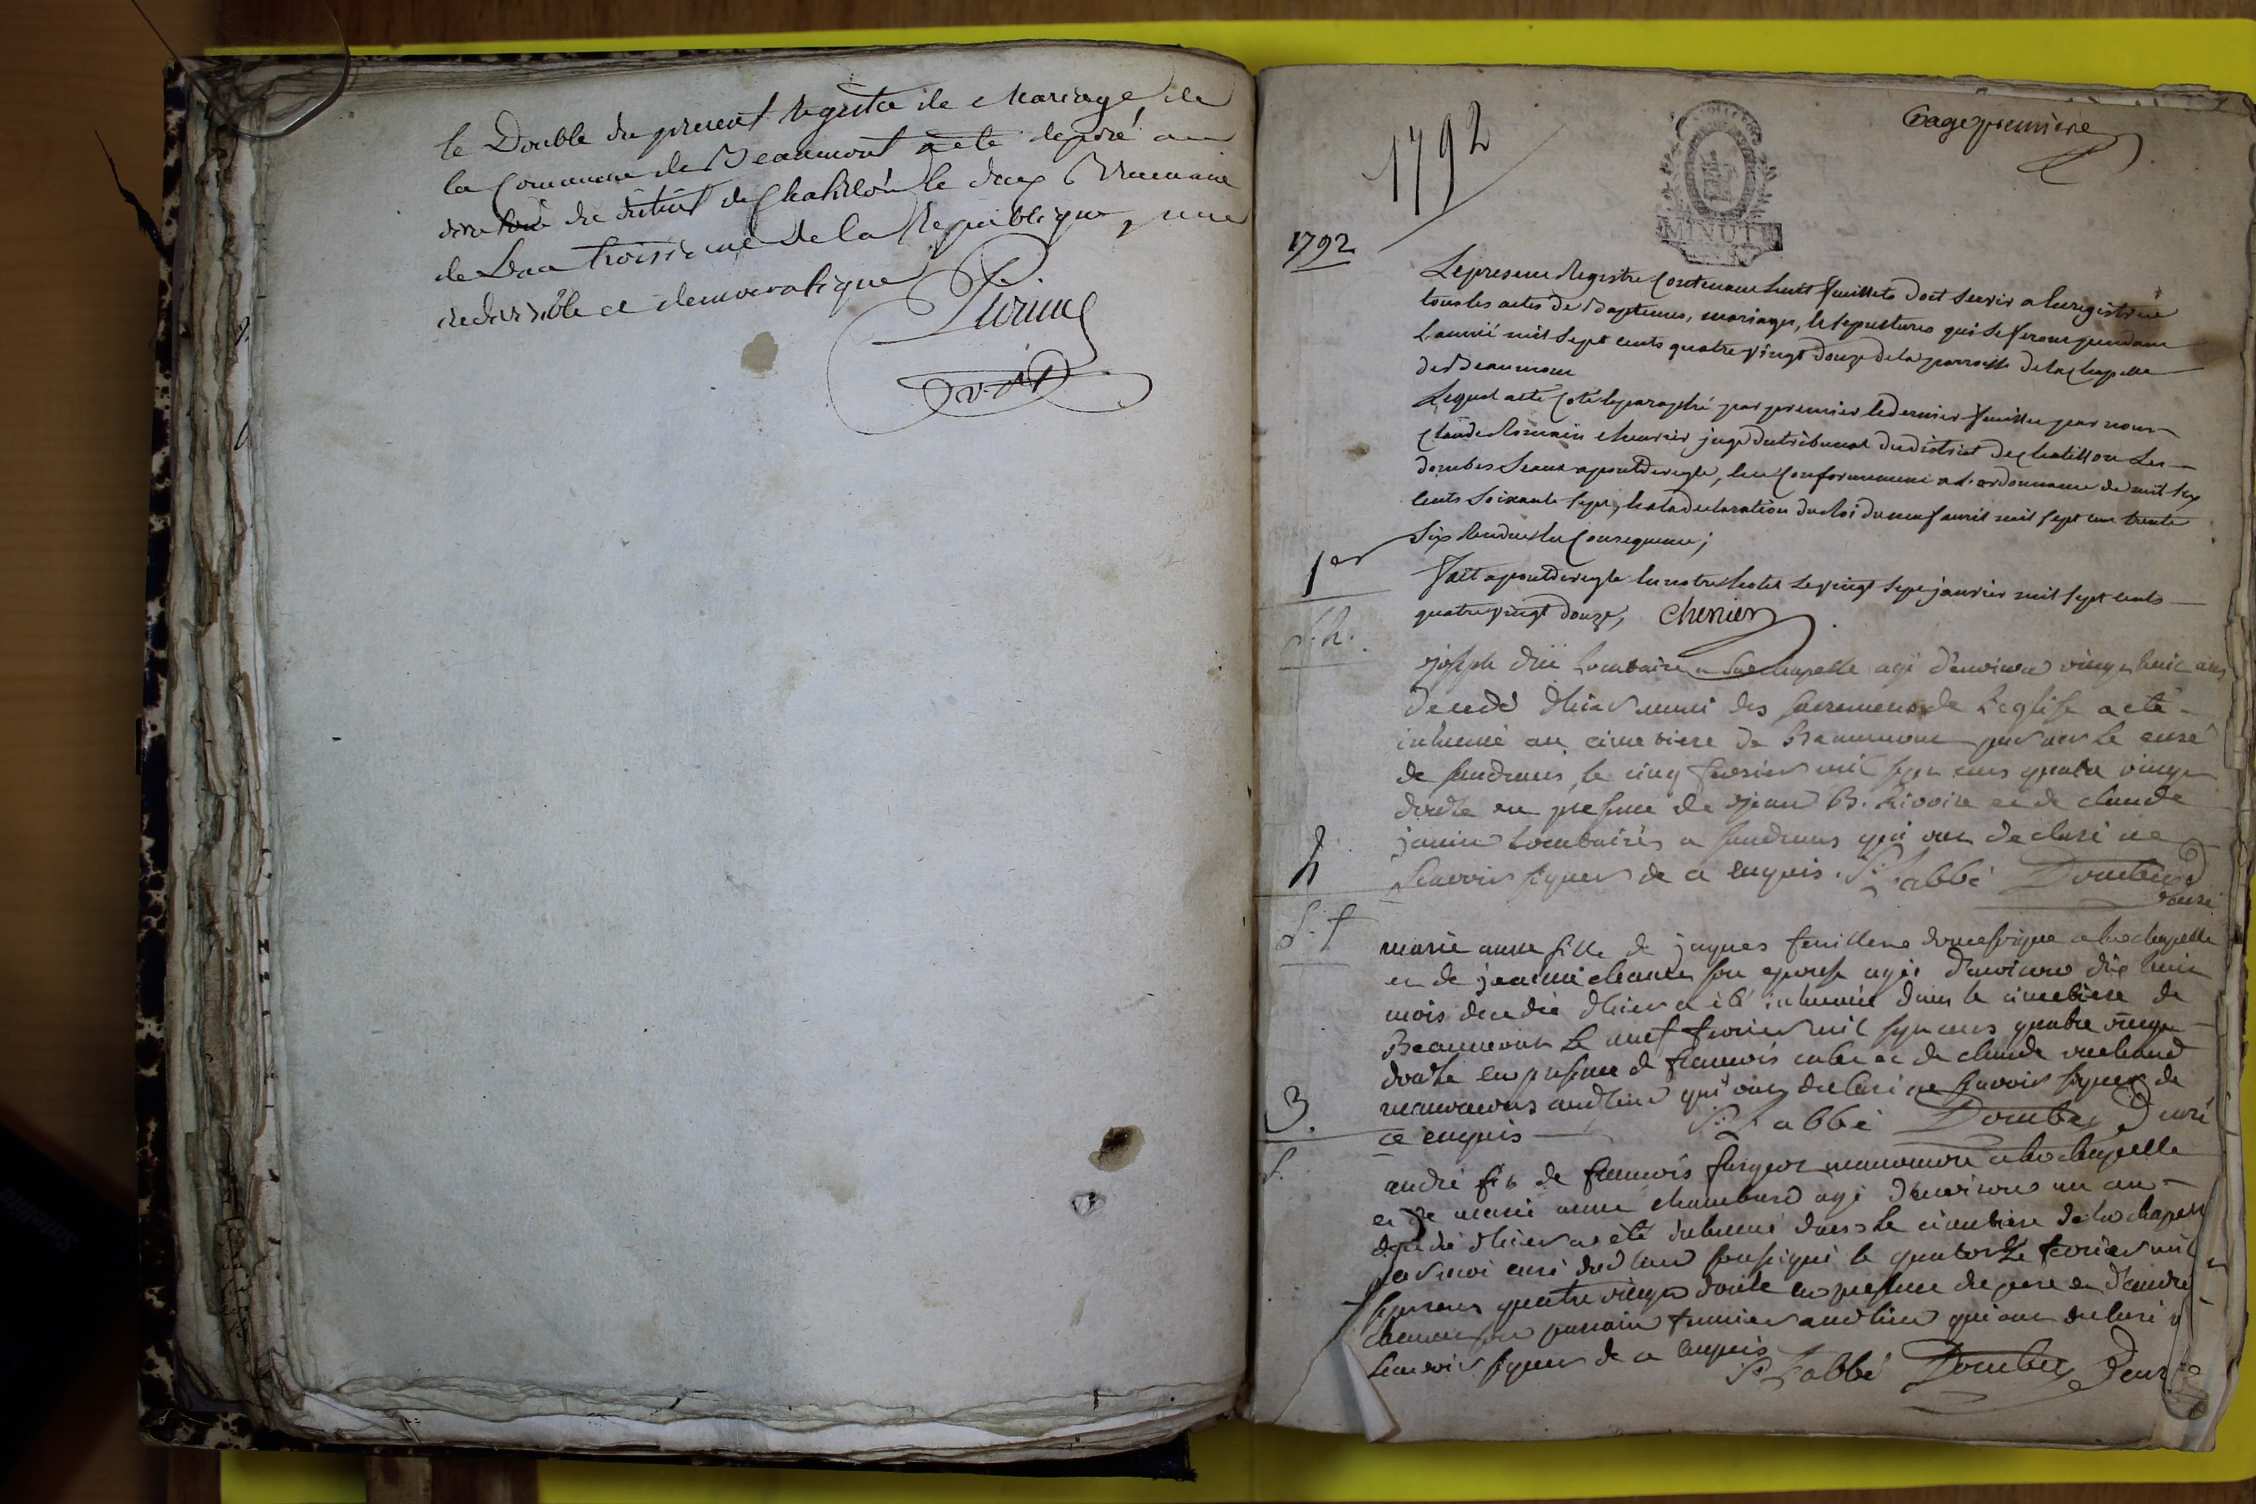 le Double du present registre de Mariage de
la Commune de Beaumont a ete deposé au
directoire du district de Chatillon le deux Brumaire
de L'an troisieme de la Republique, une
indivisible et democratique
1792
page premiere
MINUTE
1792
Le present Registre Contenant huit feuillets doit servir a Enregistrer
tous les actes de Baptemes, mariages, et sepultures qui se feront pendant
l'année mil sept cents quatre vingt douze de la parroisse de la Chapelle
de Beaumont
Lequel a ete Coté et paraphé par premier et dernier feuillet par nous
Claude Romain chenier juge du tribunal du district de chatillon Les
dombes seant a pontdeveyle, En Conformement a L'ordonnance de mil six
cents soixante sept, et a la declaration du Roi du neuf avril mil sept cent trente
six Rendues En Consequence;
1er
fait a pontdeveyle En notre hotel Le vingt sept janvier mil sept cents
quatre vingt douze, chenier
S. h.
joseph locataire a la chapelle agé d'environ vingt huit ans
decedé d'hier muni des sacremens de L'eglise a eté
inhumé au cimetiere de Beaumont par moi le curé
de sandrans, le cinq fevrier mil sept cens quatre vingt
douze en presence de jean B. Rivoire et de claude
janin locataires a sandrans qui ont declaré ne
scavoir signer de ce enquis. L'abbé Dombey curé
2
S. f
marie anne fille de jaques feuillene domestique a la chapelle
et de jeanne chanel son epouse agée d'environ dix huit
mois decedée d'hier a été inhumée dans le cimetiere de
Beaumont le neuf fevrier mil sept cens quatre vingt
douze en presence de francois et de claude
manoeuvres audit lieu qui ont declaré ne scavoir signer de
ce enquis L'abbé Dombey curé
3.
S.
andré fils de francois manoeuvre a la chapelle
et de marie anne chambard agé d'environ un an
decedé d'hier a été inhumé dans le cimetiere de la chapelle
par moi curé dud lieu soussigné le quatorze fevrier mil
sept cens quatre vingt douze en presence du pere et d'andré
son parrain fermier aud lieu qui ont declaré ne
scavoir signer de ce enquis L'abbé Dombey curé